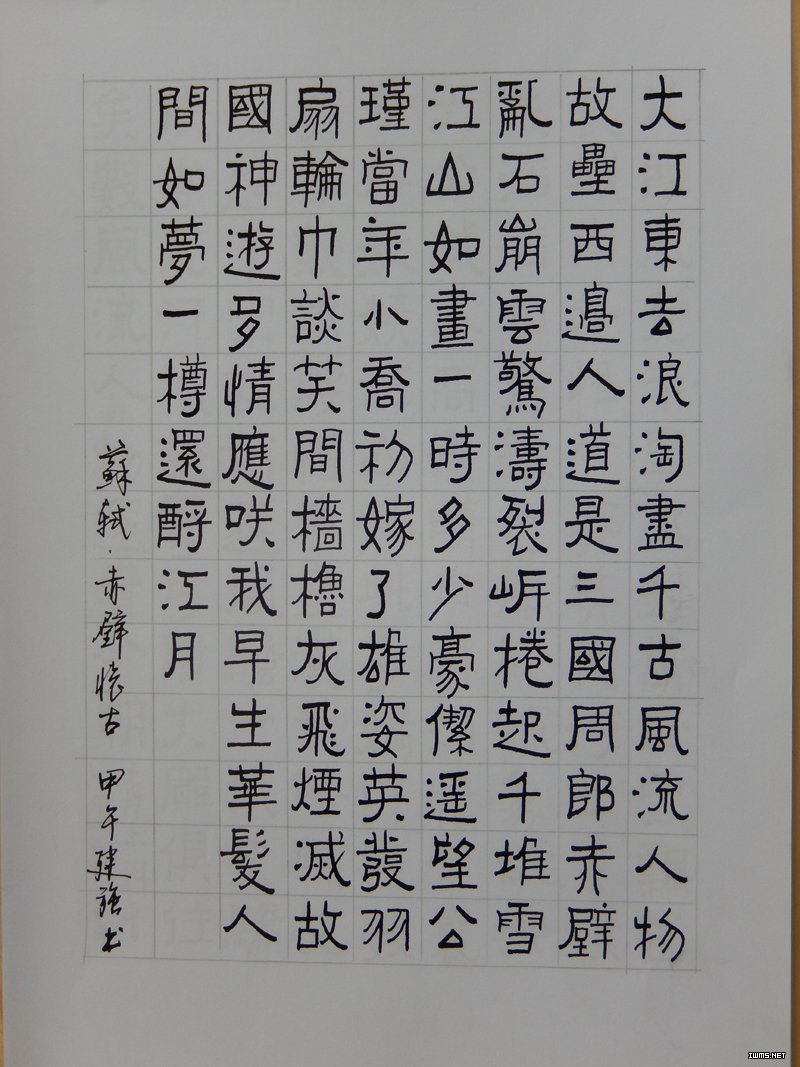 大江東去浪淘盡千古風流人物
故壘西邊人道是三國周郎赤壁
亂石崩雲驚濤裂岸捲起千堆雪
江山如畫一時多少豪傑遥望公
瑾當年小喬初嫁了雄姿英發羽
扇輪巾談笑間檣櫓灰飛煙滅故
國神遊多情應咲我早生華髮人
間如夢一樽還酹江月
蘇軾·赤壁懷古 甲午建強书
IWMS.NET